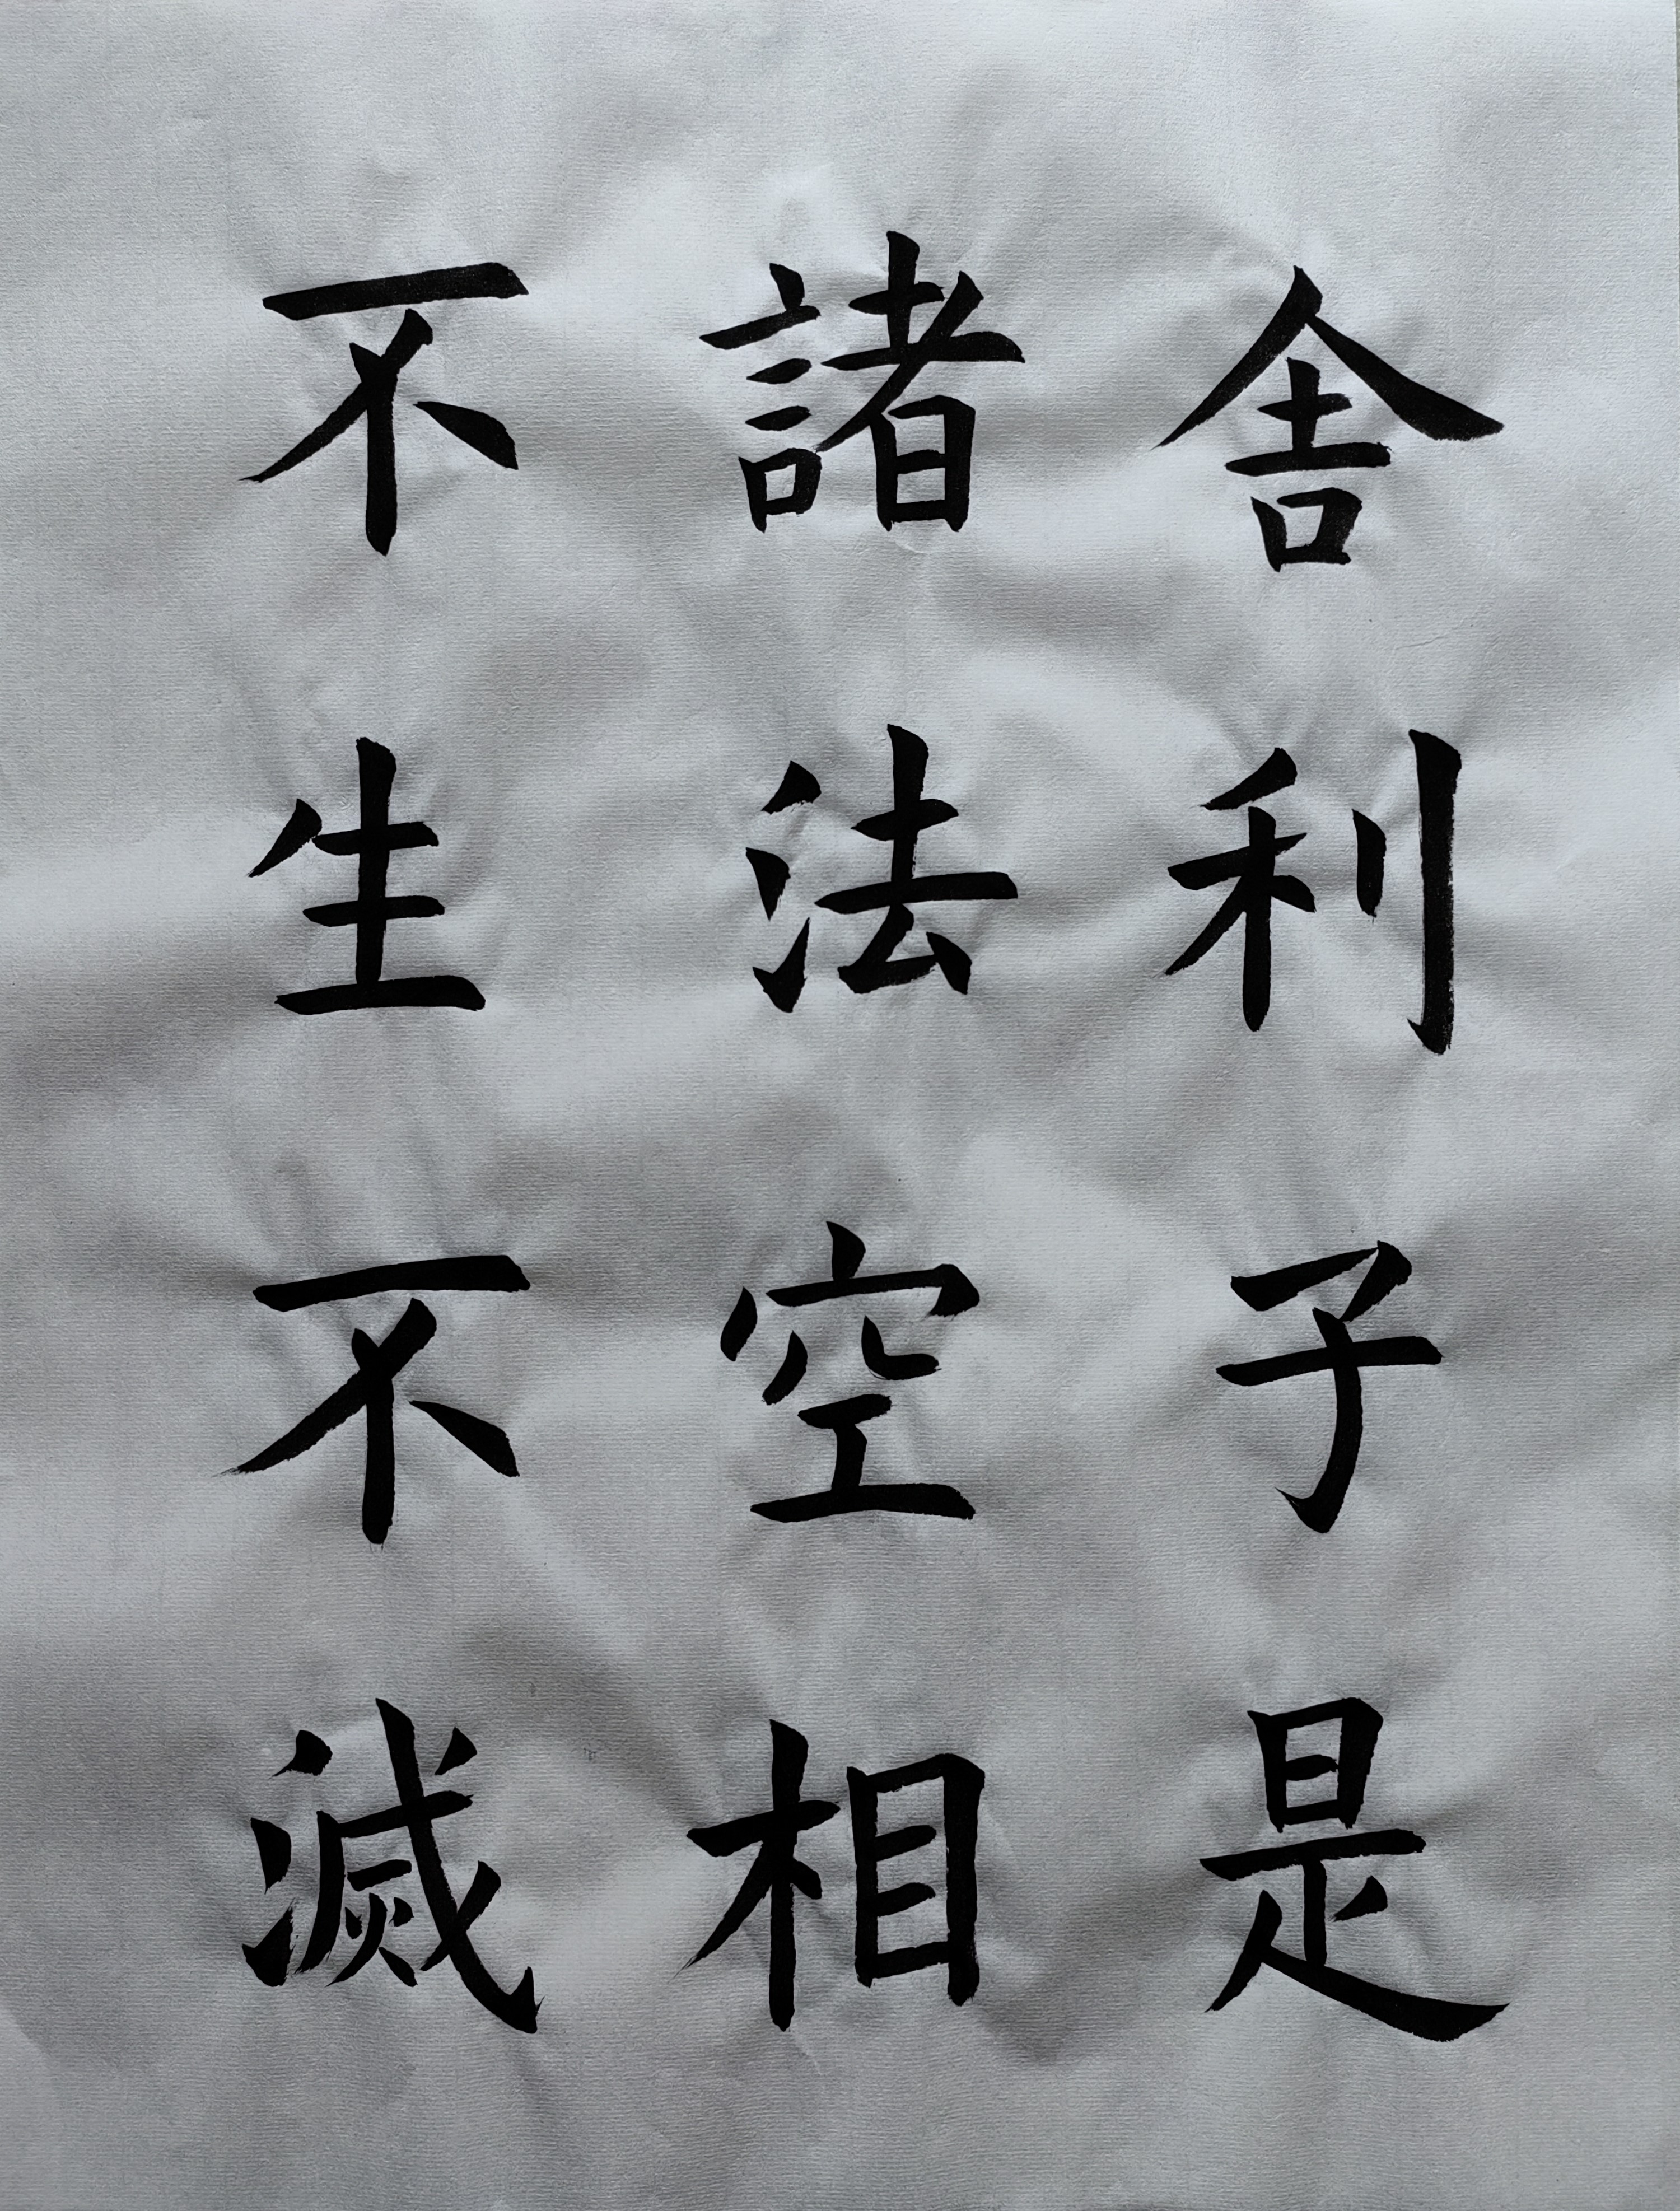 舎利子是
諸法空相
不生不滅